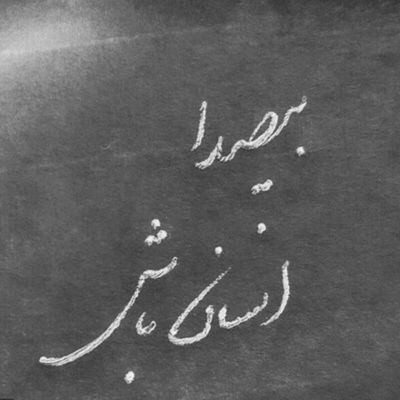 بی‌صدا
انسان باش